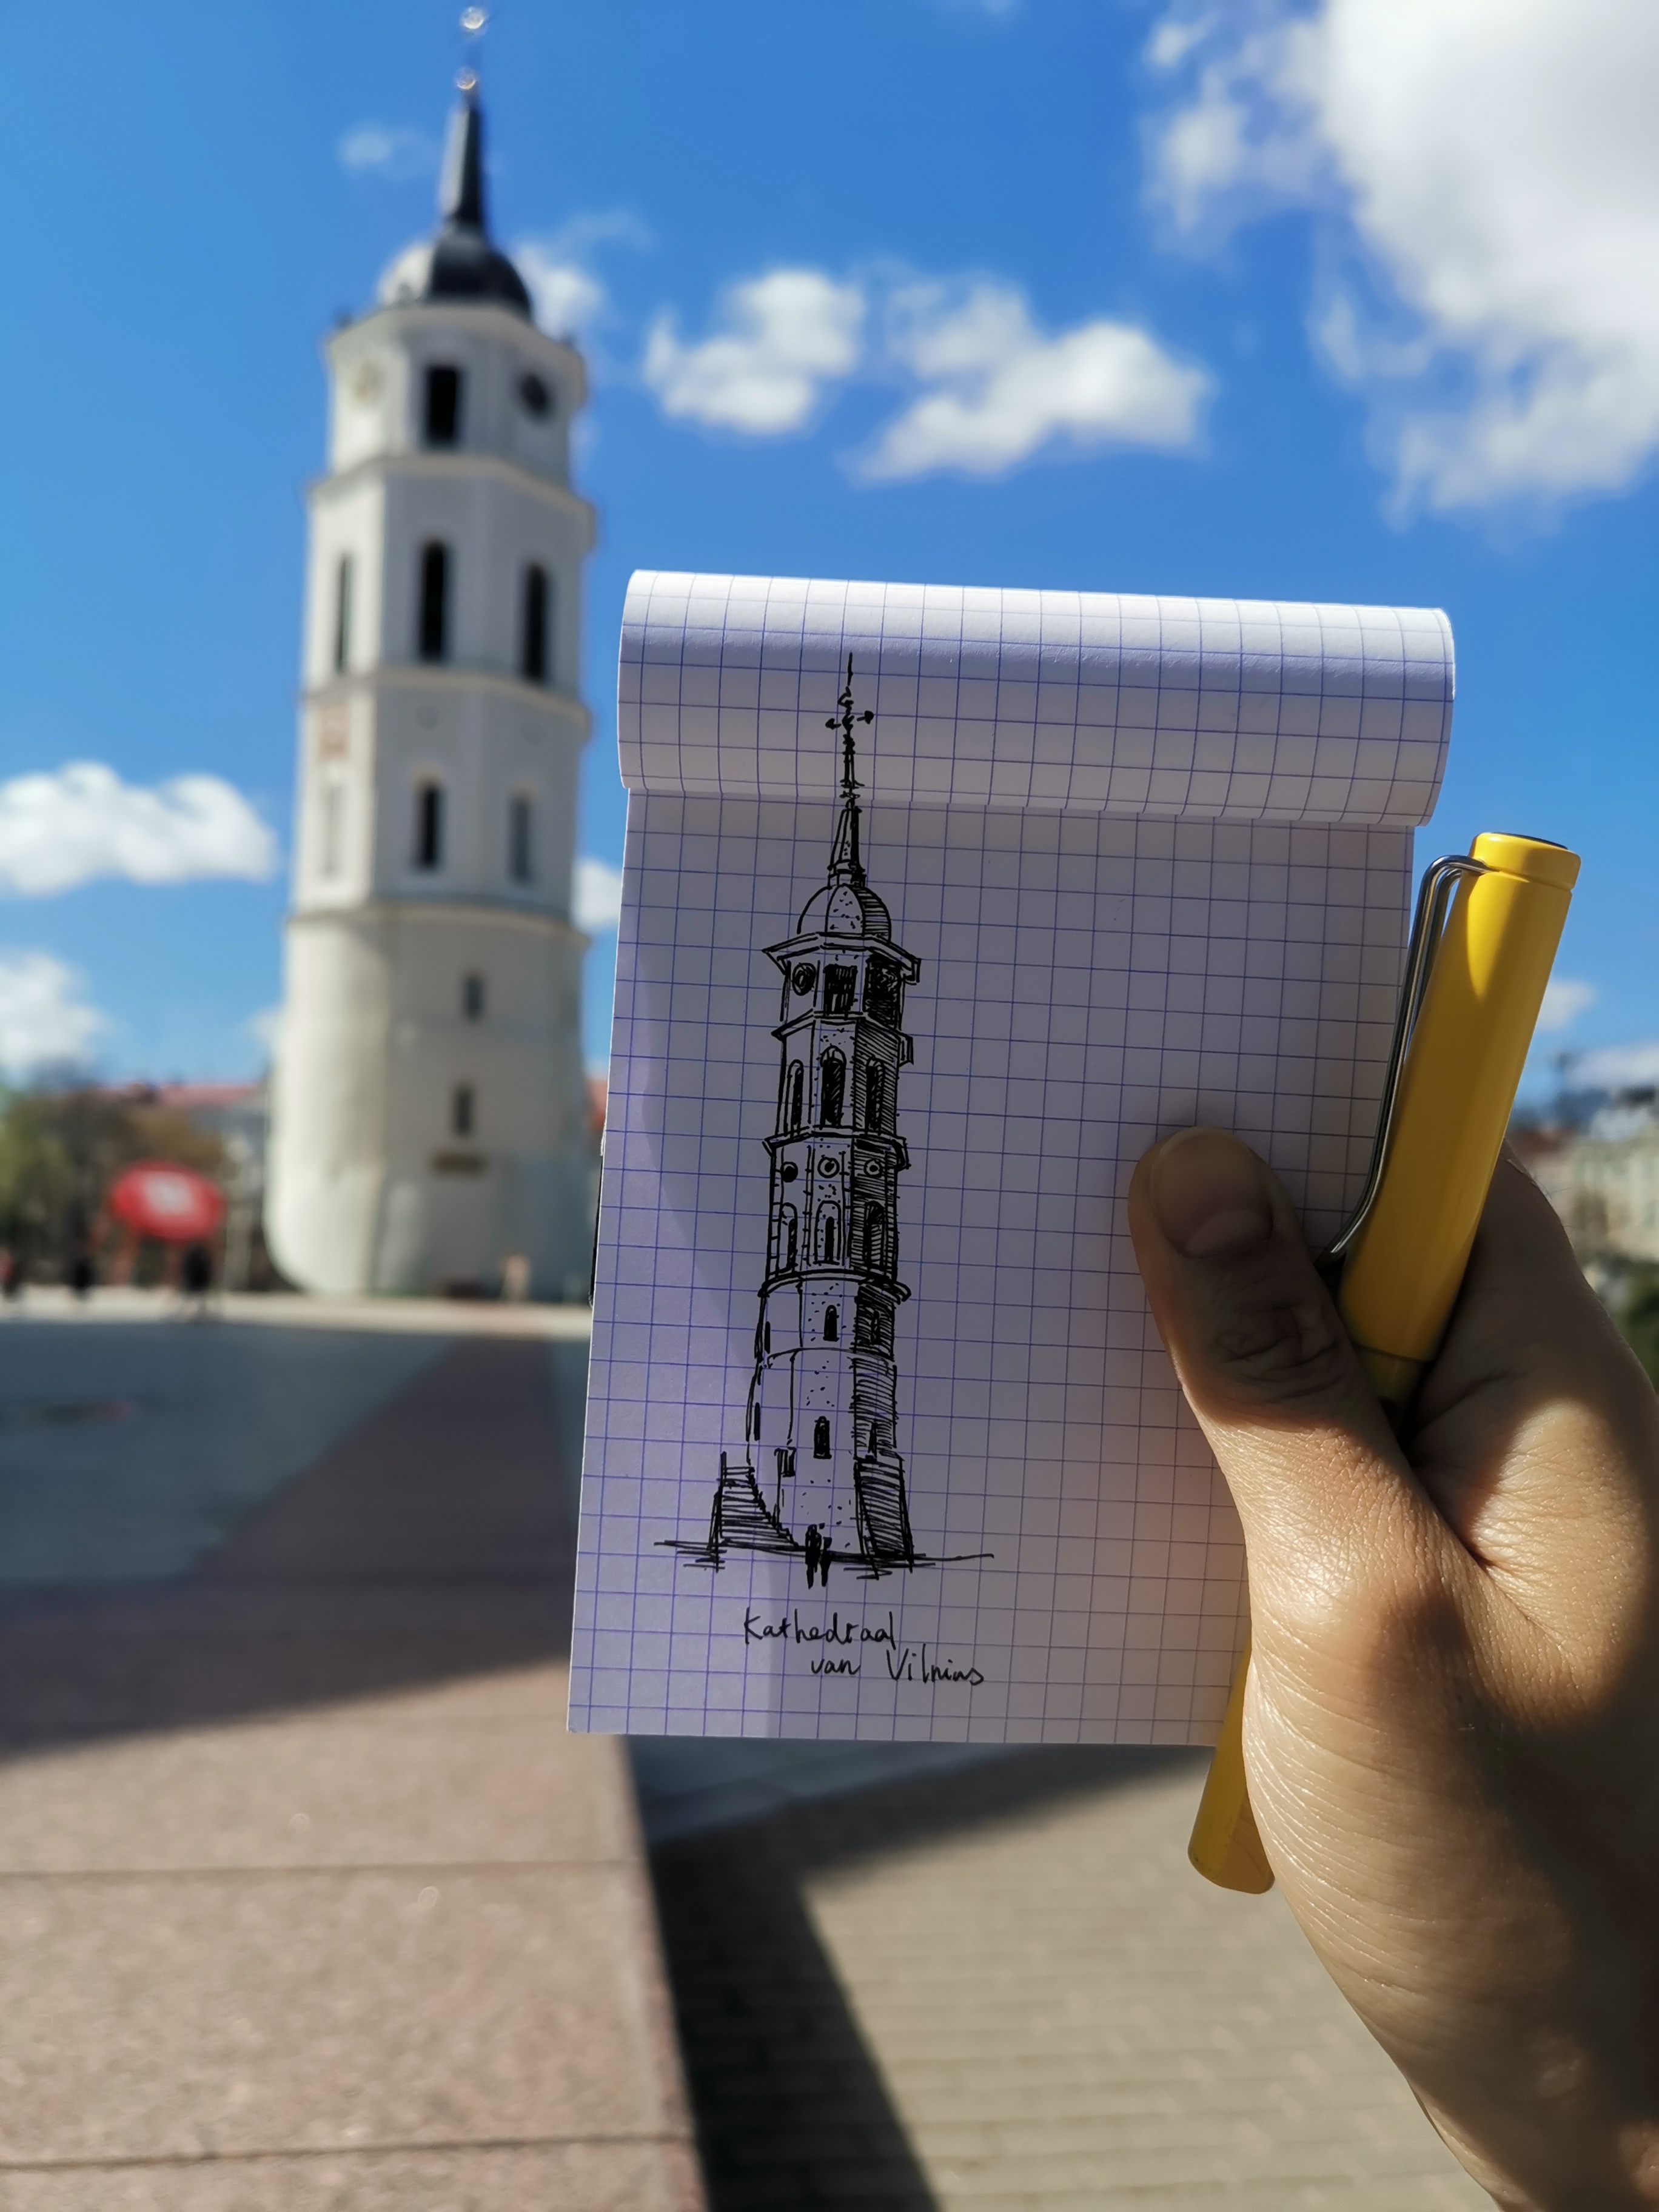 Kathedraal
van Vilnius